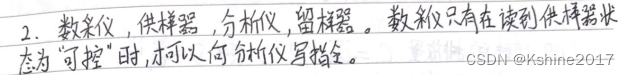 2. 数采仪,供样器,分析仪,留样器。数采仪只有在读到供样器状
态为“可控”时,才可以向分析仪写指令。
CSDN @Kshine2017